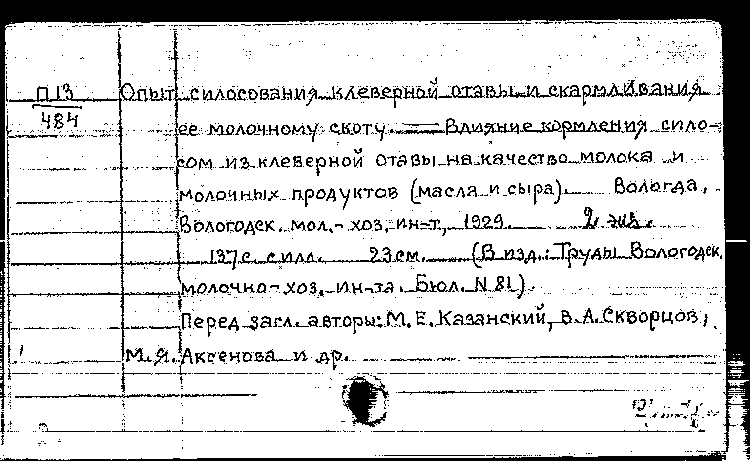 П13 Опыт силосования клеверной отавы и скармливания
484 ее молочному скоту. — Влияние кормления сило-
сом из клеверной отавы на качество молока и
молочных продуктов (масла и сыра). Вологда,
Вологодск. мол.-хоз. ин-т, 1929. 2 экз.
137 с. с илл. 23 см. (В изд.: Труды Вологодск.
молочно-хоз. ин-та. Бюл. N 81).
Перед загл. авторы: М. Е. Казанский, В. А. Скворцов,
М. Я. Аксенова и др.